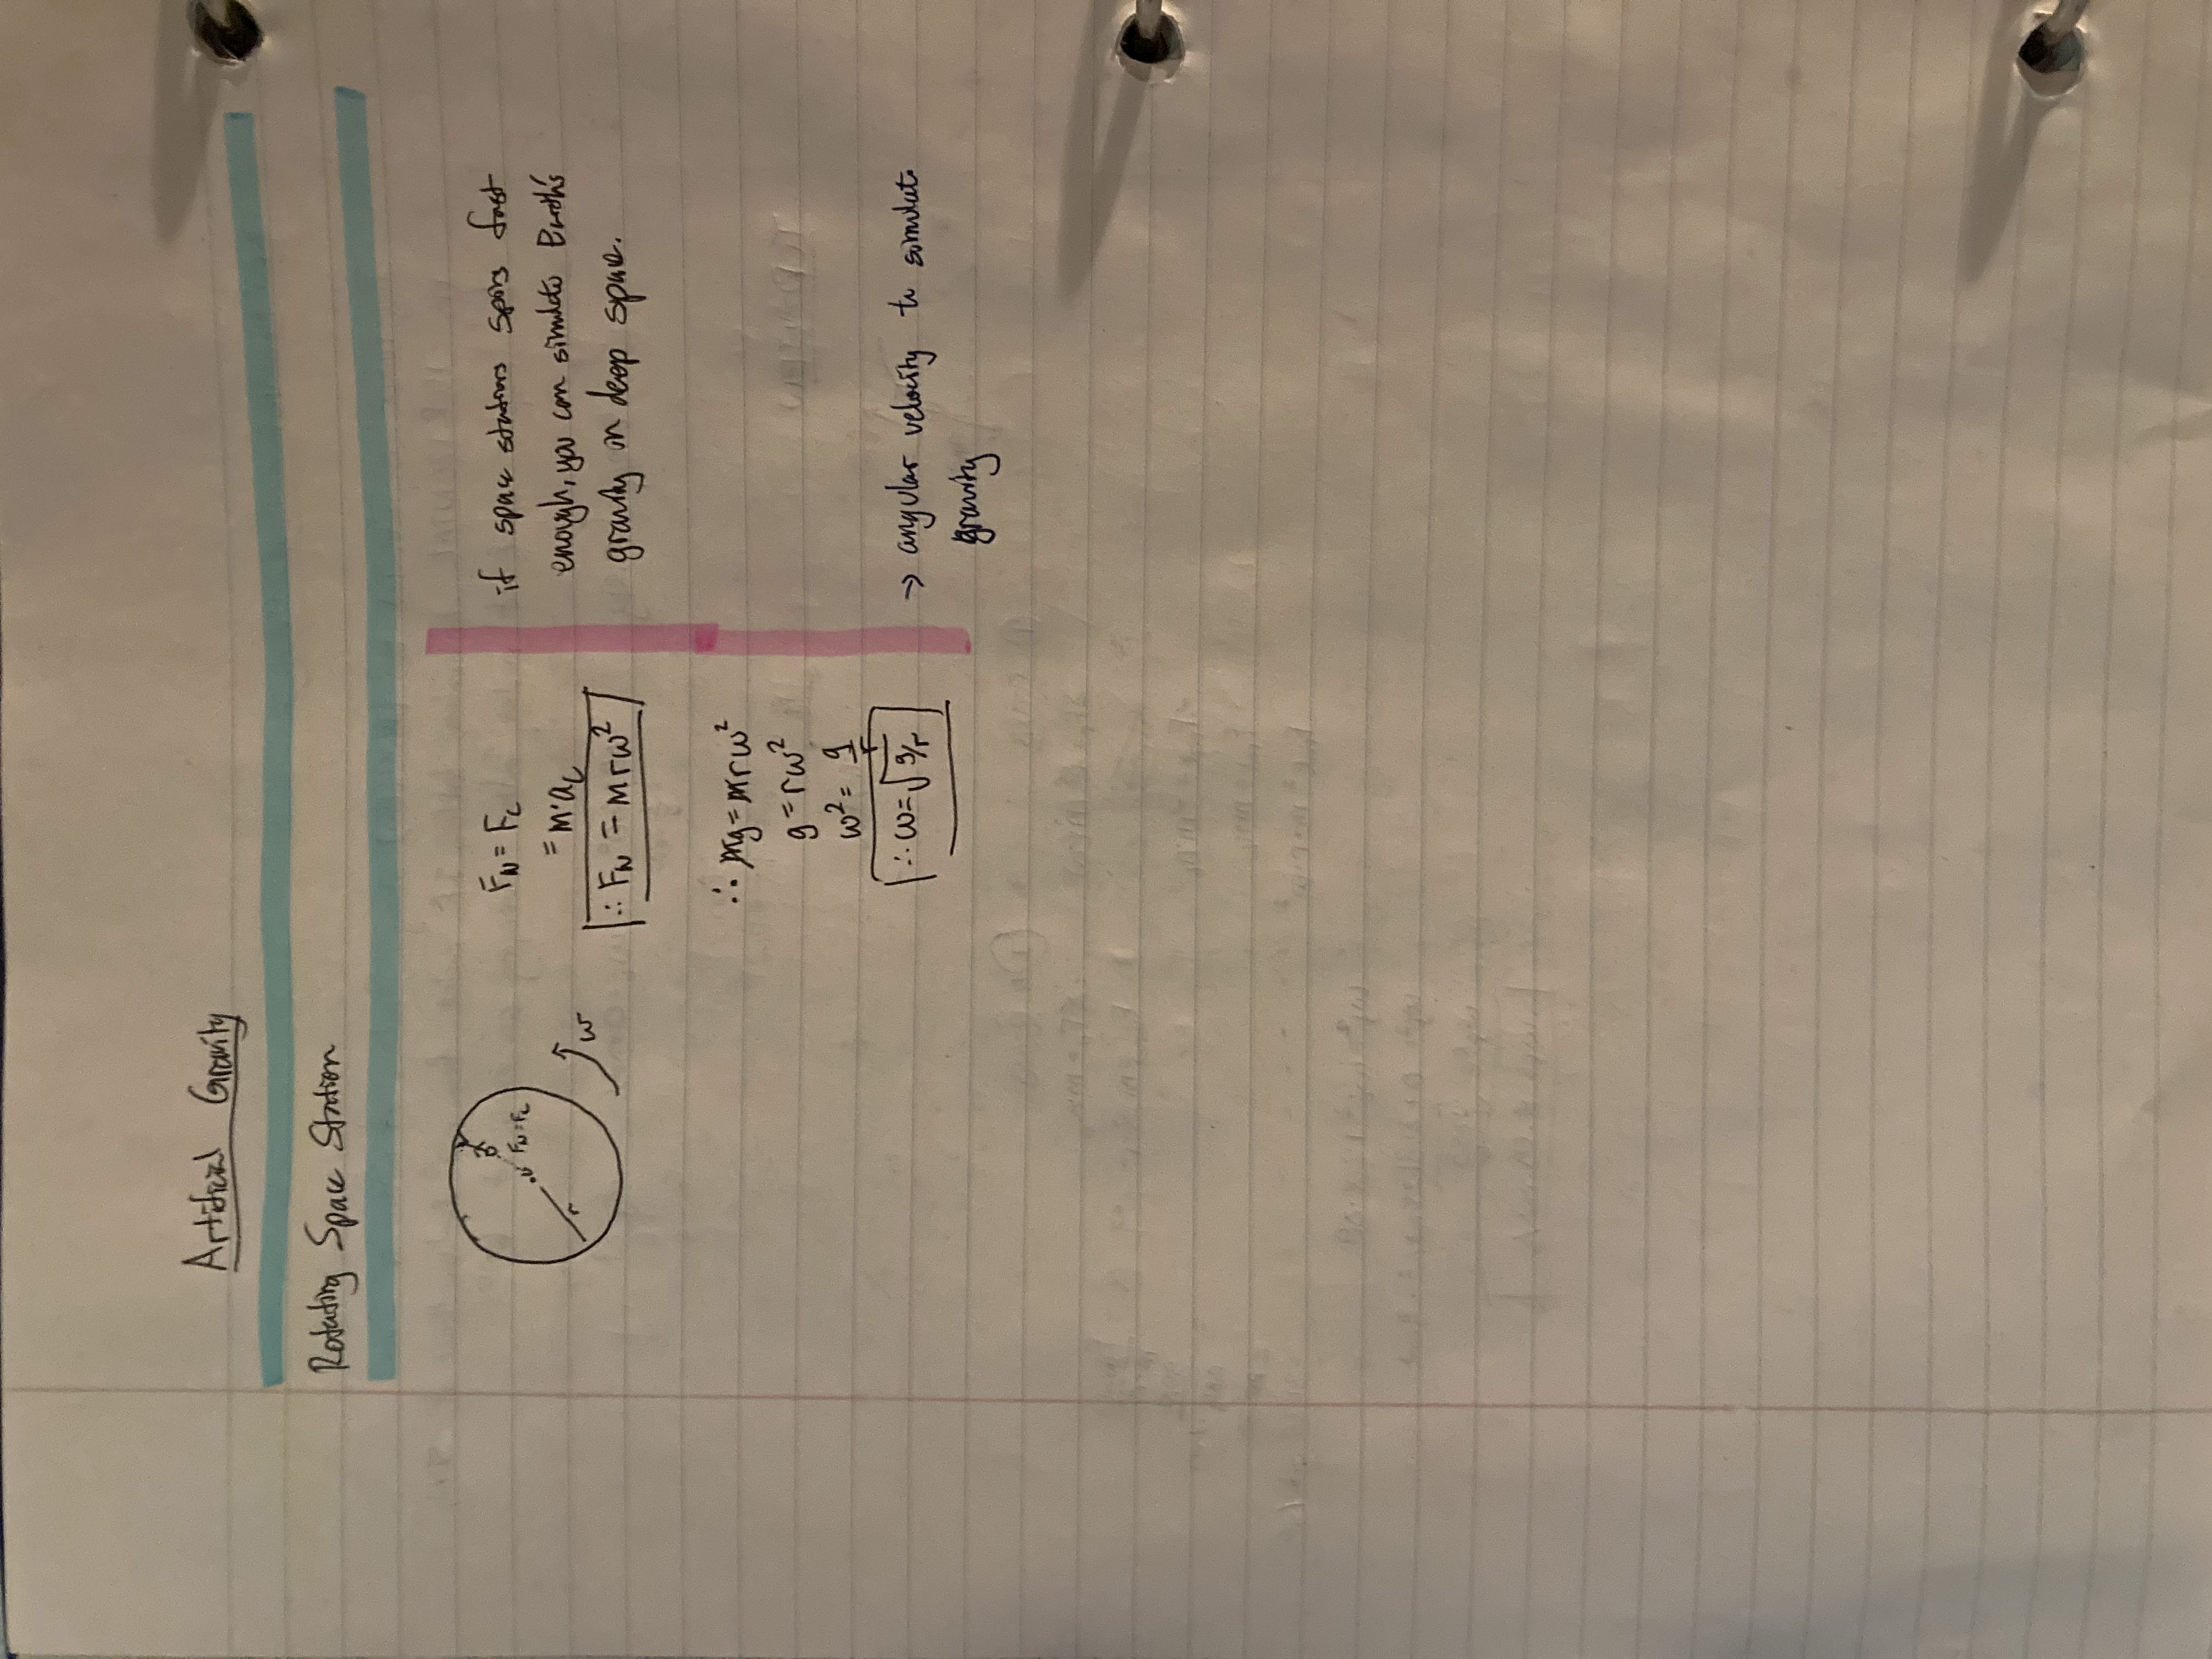 Artificial Gravity
Rotating Space Station
F_N = F_c
r
ω
F_N = F_c
= m·a_c
∴ F_N = mrω²
if space stations spins fast
enough, you can simulate Earth's
gravity in deep space.
∴ mg = mrω²
g = rω²
ω² = g/r
∴ ω = √g/r
→ angular velocity to simulate
gravity